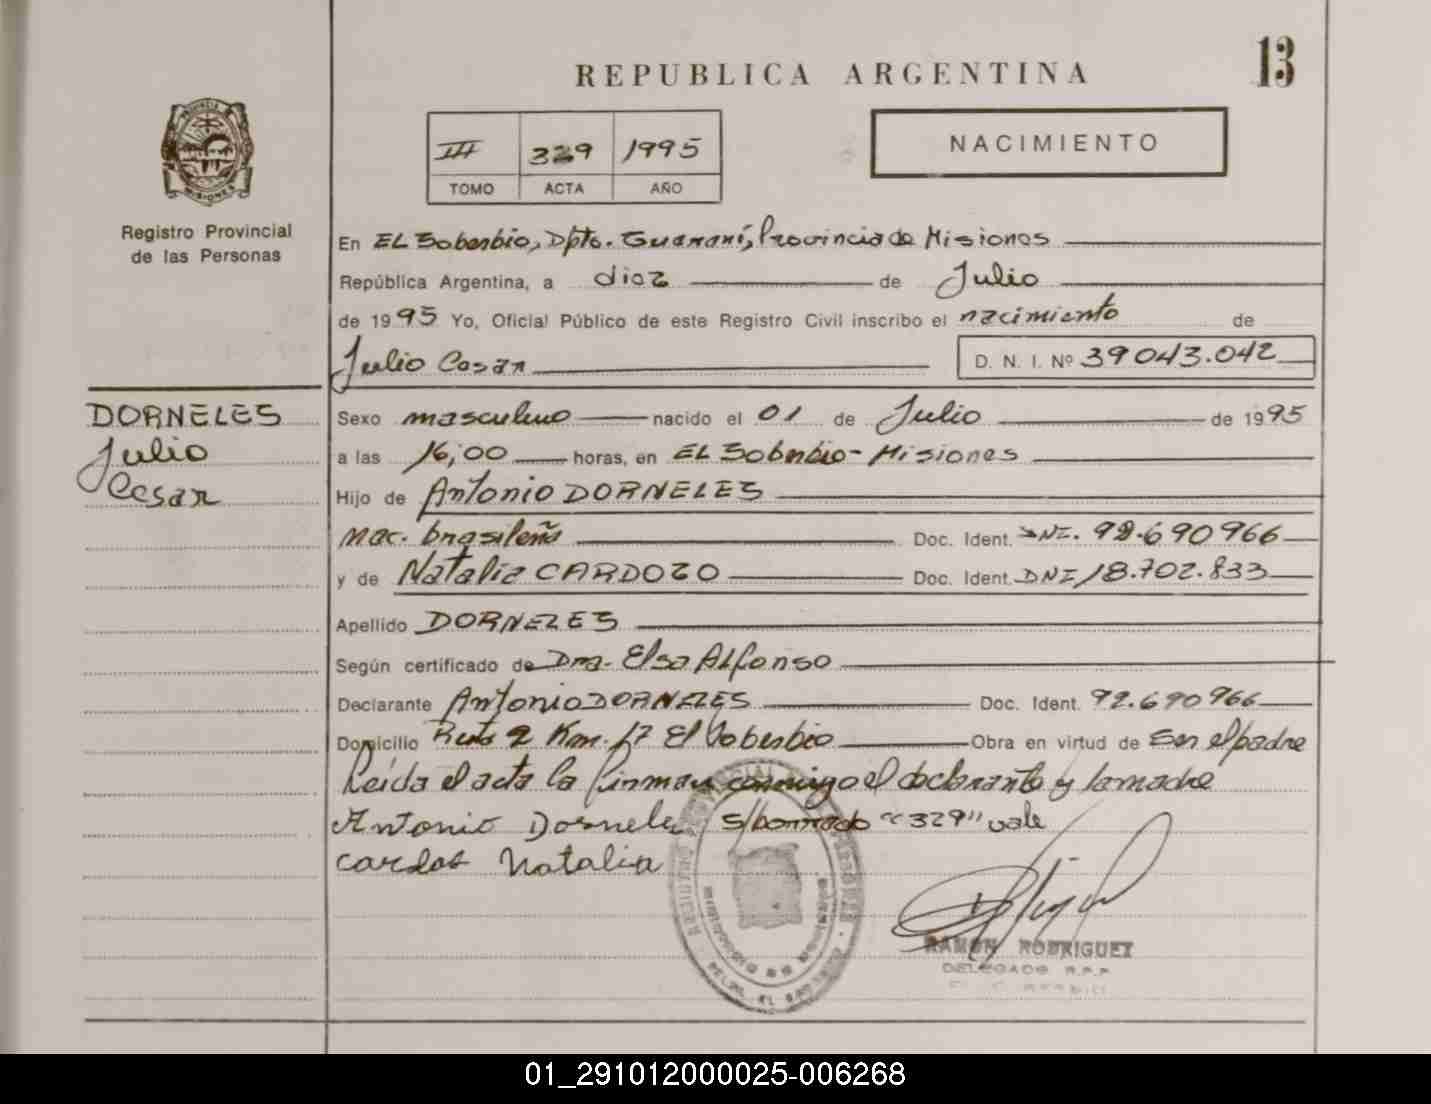 13
REPUBLICA ARGENTINA
III 329 1995
TOMO ACTA AÑO
NACIMIENTO
PROVINCIA DE
MISIONES
Registro Provincial
de las Personas
En EL Soberbio, Dpto. Guaraní, Provincia de Misiones
República Argentina, a diez de Julio
de 1995 Yo, Oficial Público de este Registro Civil inscribo el nacimiento de
Julio Cesar D. N. I. Nº 39043.042
DORNELES
Julio
Cesar
Sexo masculino nacido el 01 de Julio de 1995
a las 16,00 horas, en EL Soberbio - Misiones
Hijo de Antonio DORNELES
nac. brasileña Doc. Ident. DNI. 92.690966
y de Natalia CARDOZO Doc. Ident. DNI 18.702.833
Apellido DORNELES
Según certificado de Dra. Elsa Alfonso
Declarante Antonio DORNELES Doc. Ident. 92.690966
Domicilio Ruta 2 Km. 17 El Soberbio Obra en virtud de Ser el padre
Leída el acta la firman conmigo el declarante y la madre
Antonio Dornele s/borrado "329" vale
cardos Natalia
RAMON RODRIGUEZ
DELEGADO R.P.P
01_291012000025-006268